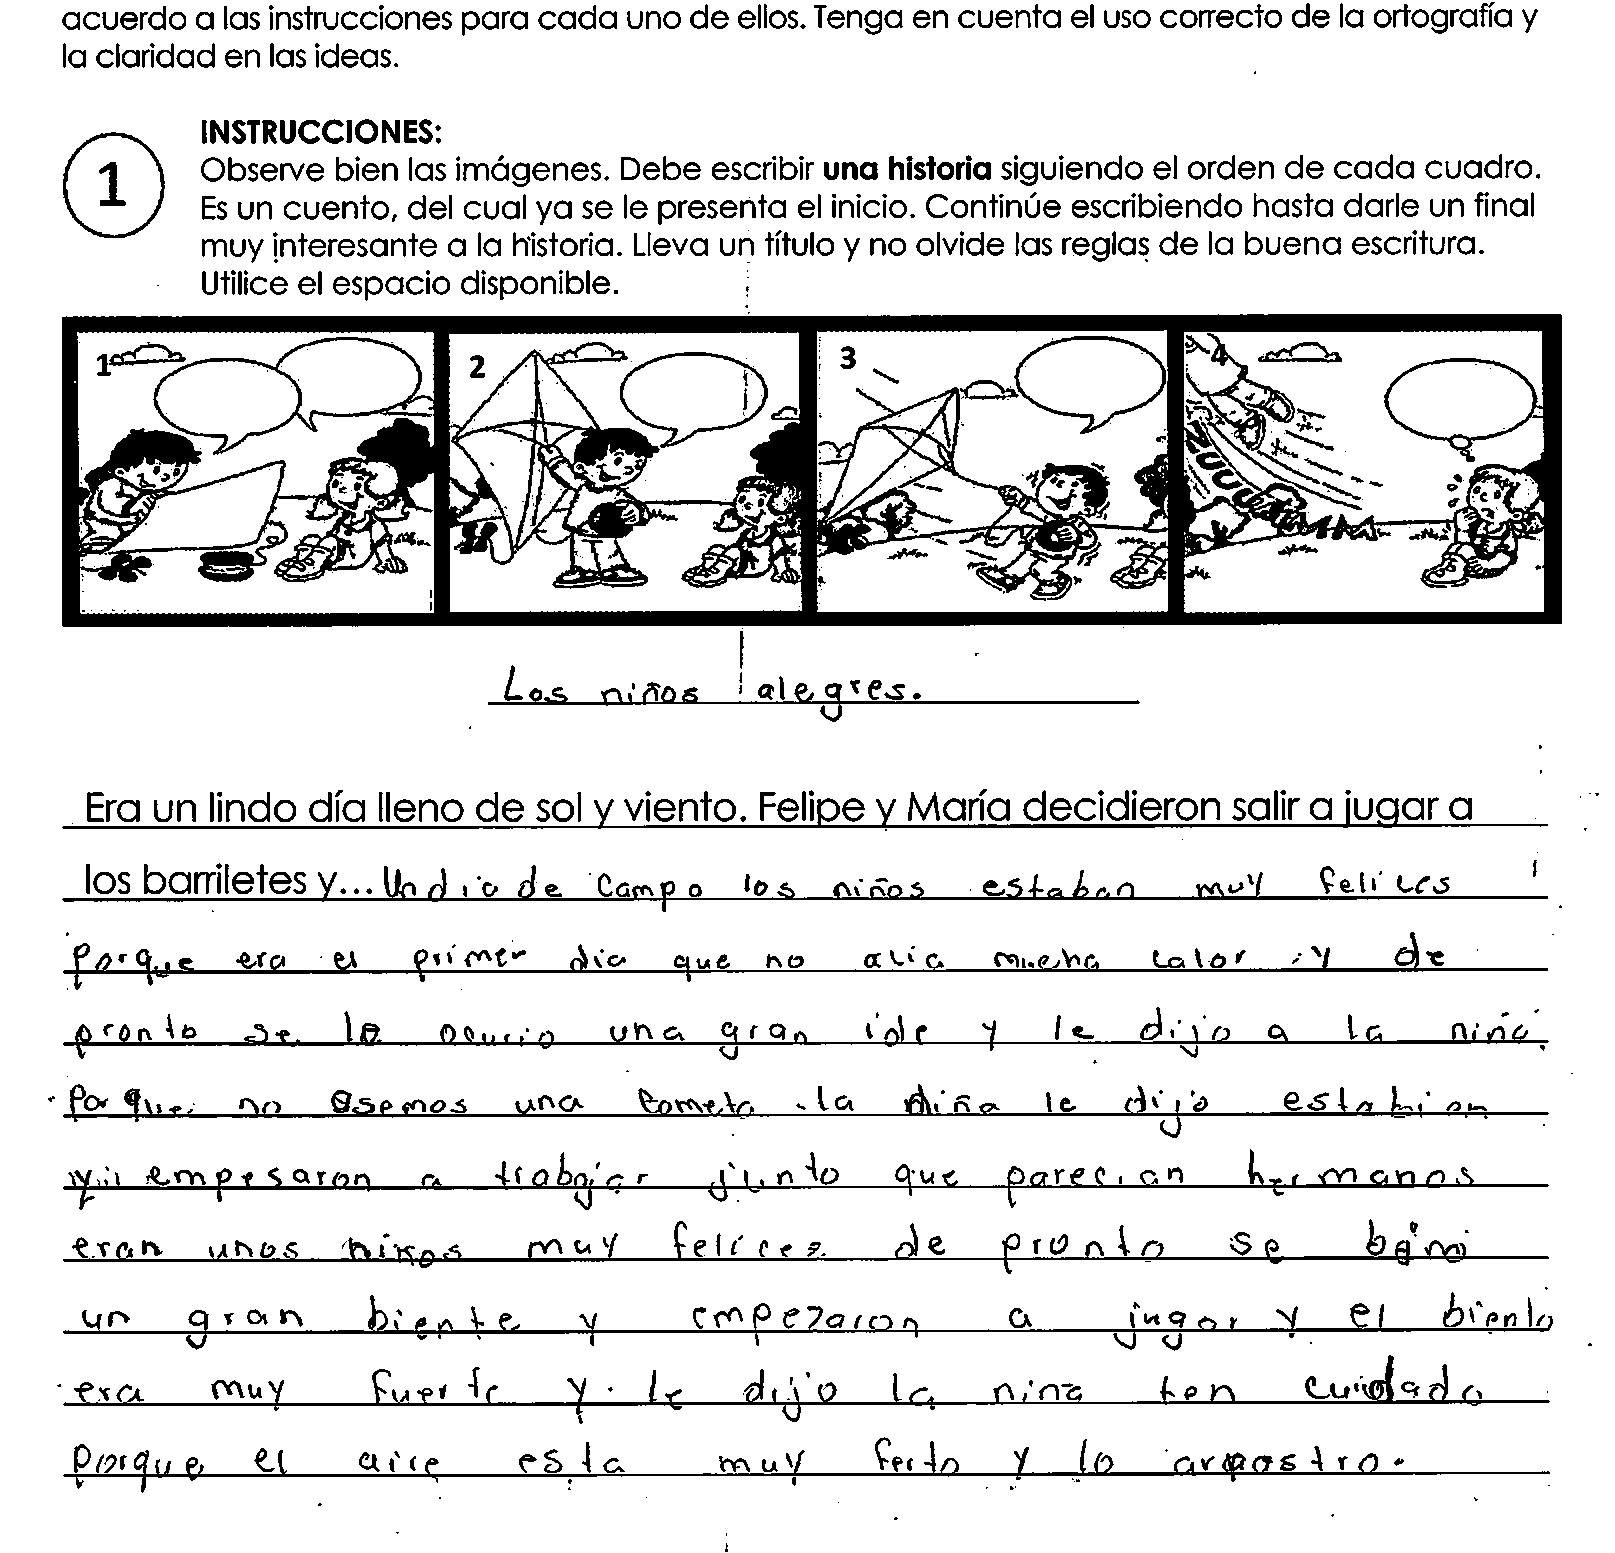 acuerdo a las instrucciones para cada uno de ellos. Tenga en cuenta el uso correcto de la ortografía y
la claridad en las ideas.
INSTRUCCIONES:
1
Observe bien las imágenes. Debe escribir una historia siguiendo el orden de cada cuadro.
Es un cuento, del cual ya se le presenta el inicio. Continúe escribiendo hasta darle un final
muy interesante a la historia. Lleva un título y no olvide las reglas de la buena escritura.
Utilice el espacio disponible.
1 2 3 4
ZUUUUMMM
Los niños alegres.
Era un lindo día lleno de sol y viento. Felipe y María decidieron salir a jugar a
los barriletes y... Un dia de campo los niños estaban muy felices
porque era el primer dia que no acia mucha calor y de
pronto se le ocurio una gran ide y le dijo a la niña.
Por que no asemos una cometa. la niña le dijo esta bien
y empesaron a trabajar junto que parecian hermanos
eran unos niños muy felices de pronto se
un gran biente y empezaron a jugar y el biento
era muy fuerte y le dijo la nina ten cuidado
porque el aire esta muy ferto y lo arrastro.